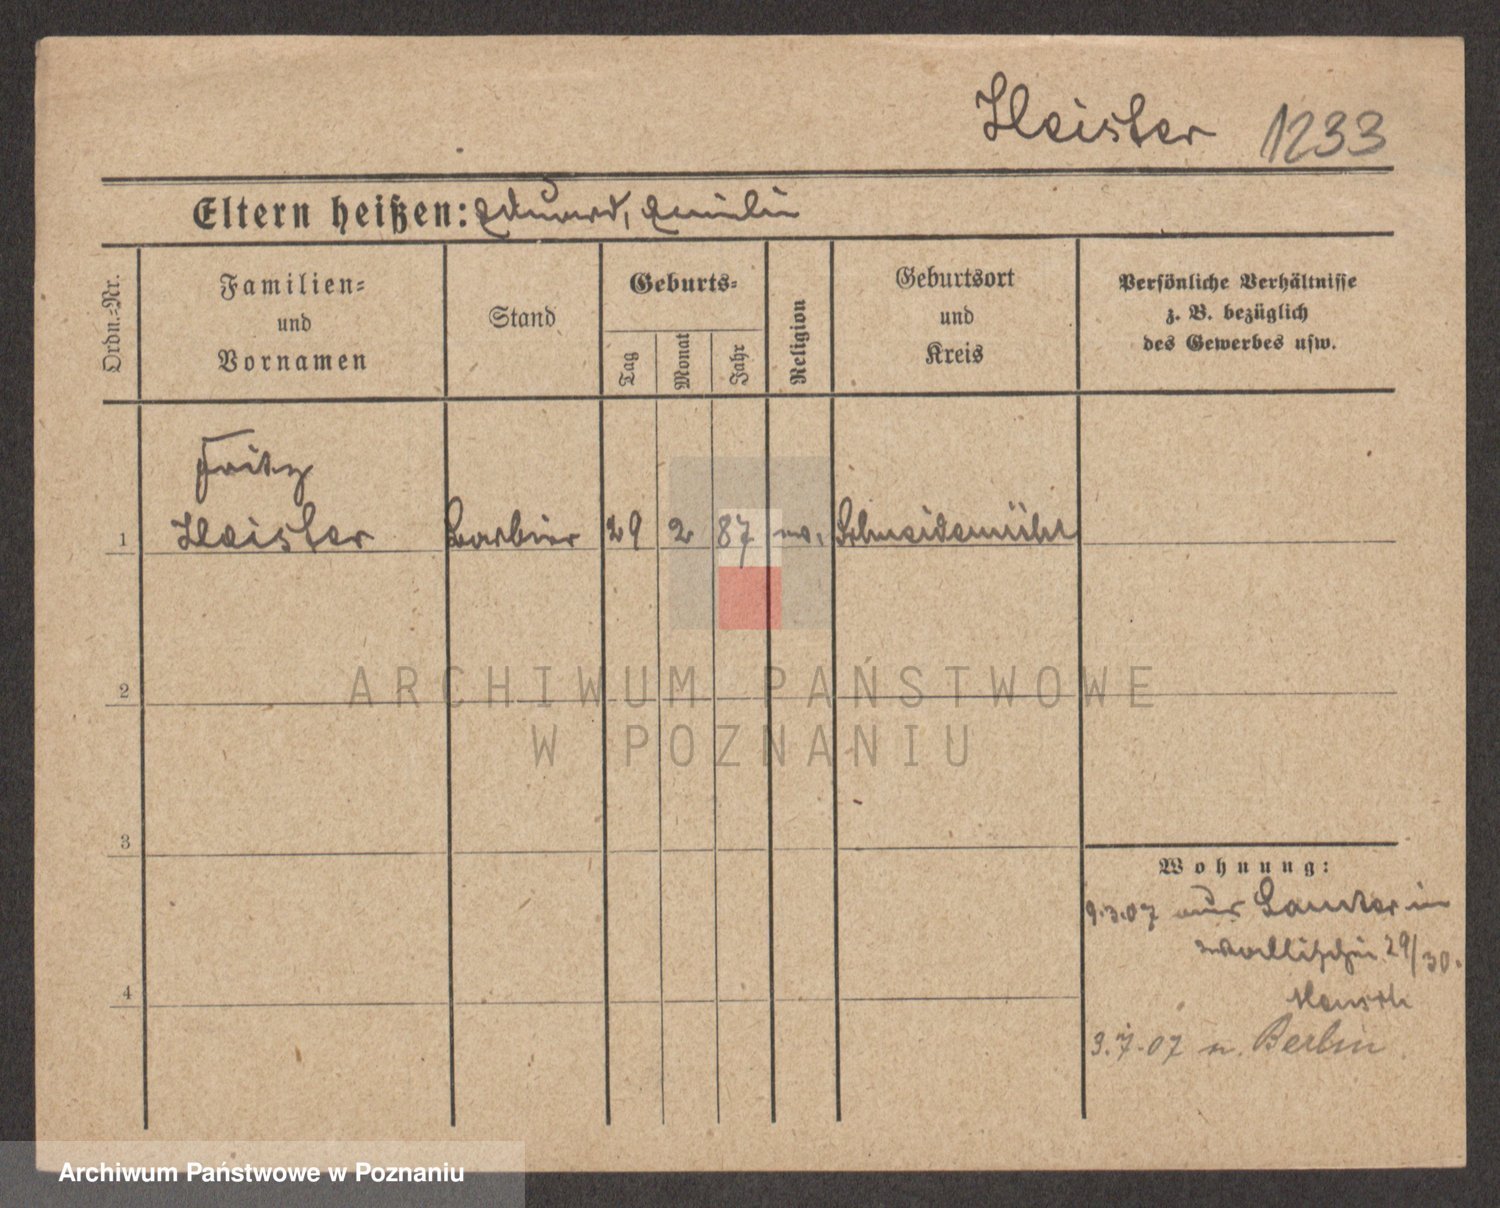 Heister 1233
Eltern heißen: Eduard, Emilie
Ordn.=Nr.
Familien=
und
Vornamen
Stand
Geburts=
Tag
Monat
Jahr
Religion
Geburtsort
und
Kreis
Persönliche Verhältnisse
z. B. bezüglich
des Gewerbes usw.
Fritz
1 Heister Barbier 29 2 87 ev. Schneidemühl
2
ARCHIWUM PAŃSTWOWE
W POZNANIU
3
Wohnung:
9.3.07 aus
Wallischei 29/30.
4
3.7.07 n. Berlin
Archiwum Państwowe w Poznaniu